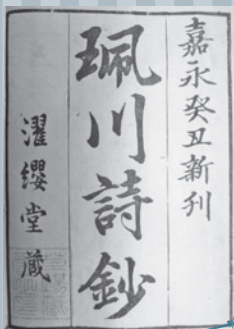 嘉永癸丑新刊
珮川詩鈔
濯纓堂藏